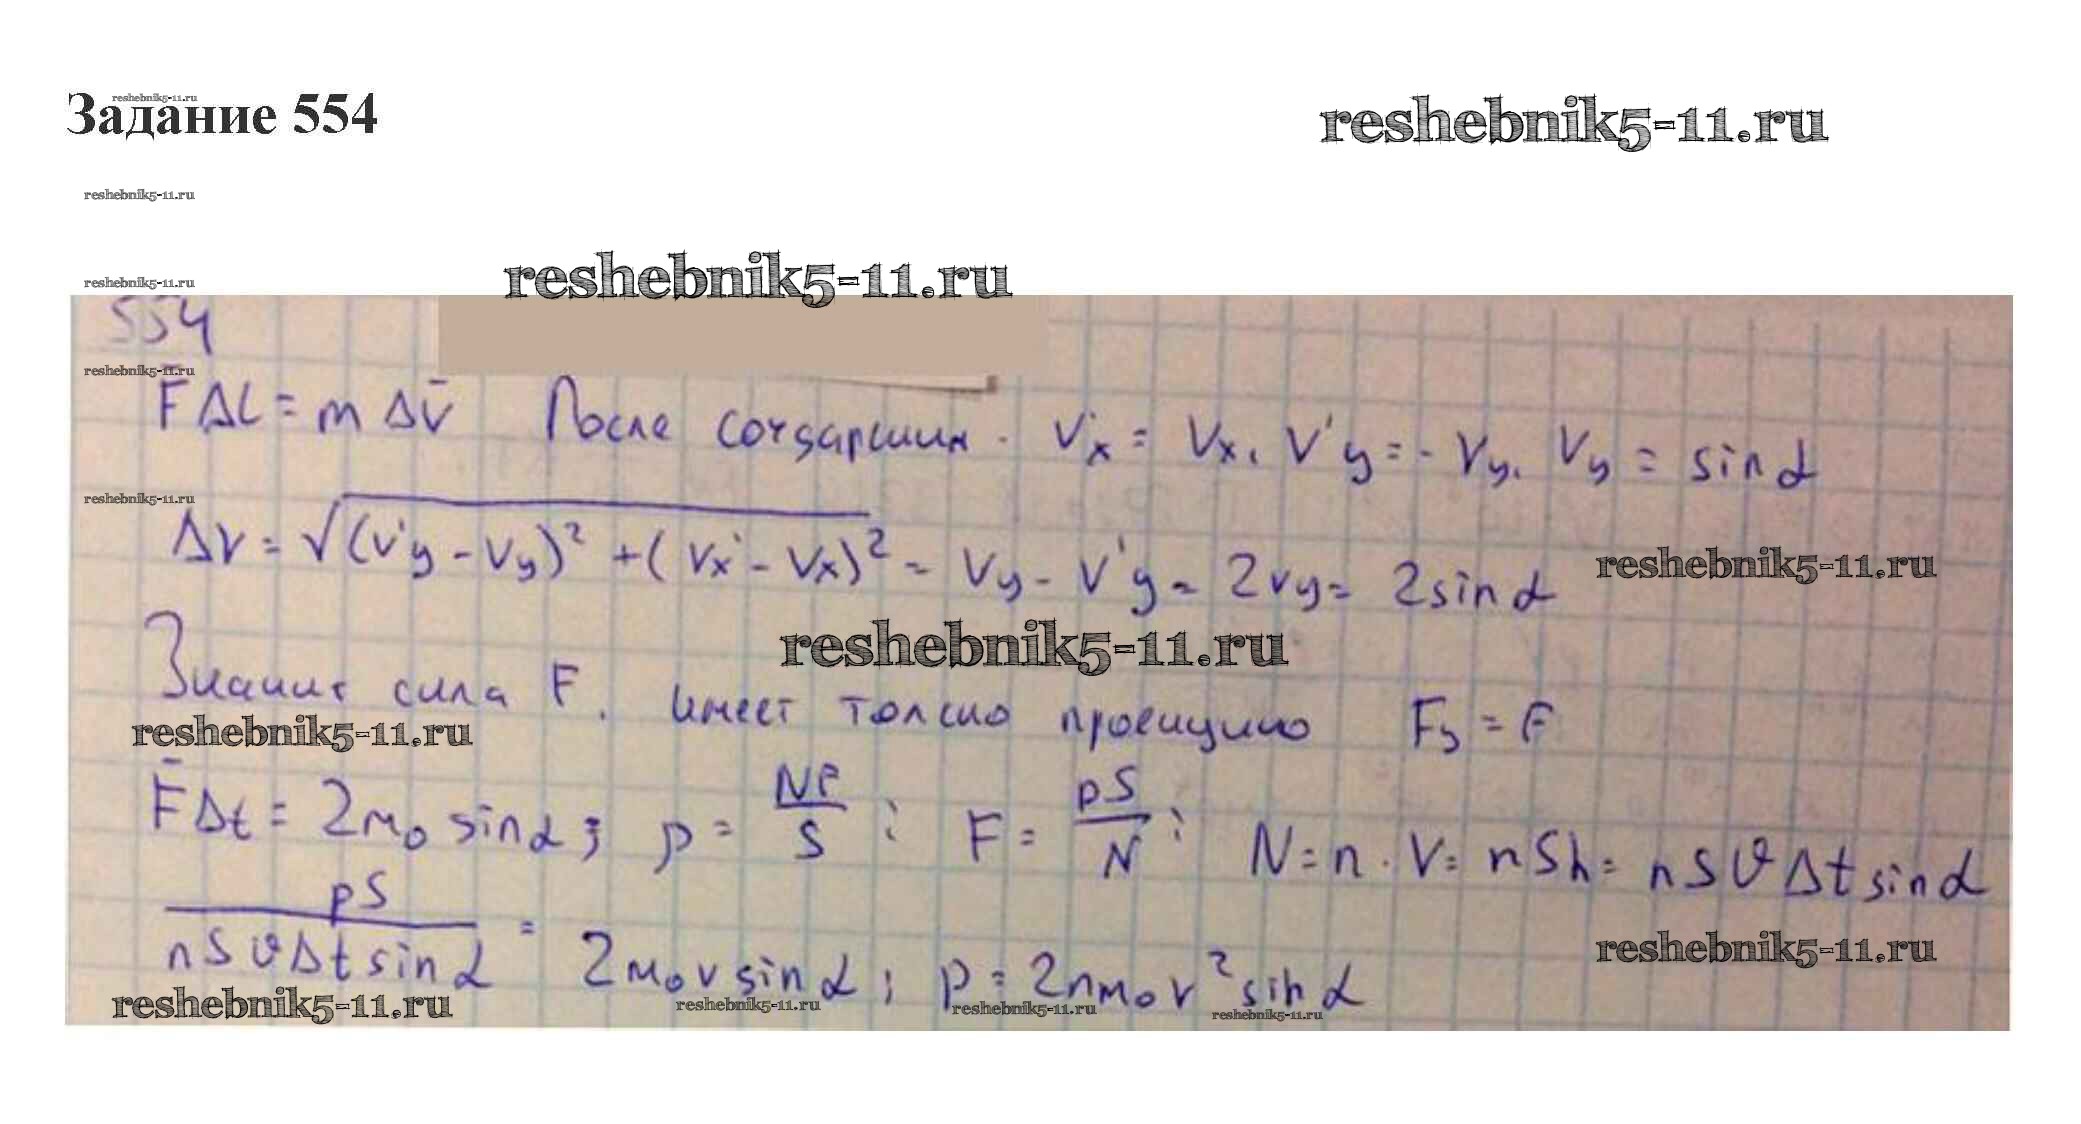 reshebnik5-11.ru
Задание 554
reshebnik5-11.ru
reshebnik5-11.ru
reshebnik5-11.ru
reshebnik5-11.ru
554
reshebnik5-11.ru
FΔt = m Δv̄ После V'x = Vx, V'y = - Vy. Vy = sin α
reshebnik5-11.ru
ΔV = √(V'y - Vy)² + (Vx' - Vx)² = Vy - V'y = 2vy = 2 sin α
reshebnik5-11.ru
reshebnik5-11.ru
Значит сила F, имеет только проекцию Fy = F
reshebnik5-11.ru
F̄Δt = 2m₀ sin α; p = NF/S ; F = pS/N ; N = n · V = nSh = nSϑΔt sin α
reshebnik5-11.ru
pS/nSϑΔt sin α = 2m₀v sin α ; p = 2nm₀v² sin α
reshebnik5-11.ru
reshebnik5-11.ru
reshebnik5-11.ru
reshebnik5-11.ru